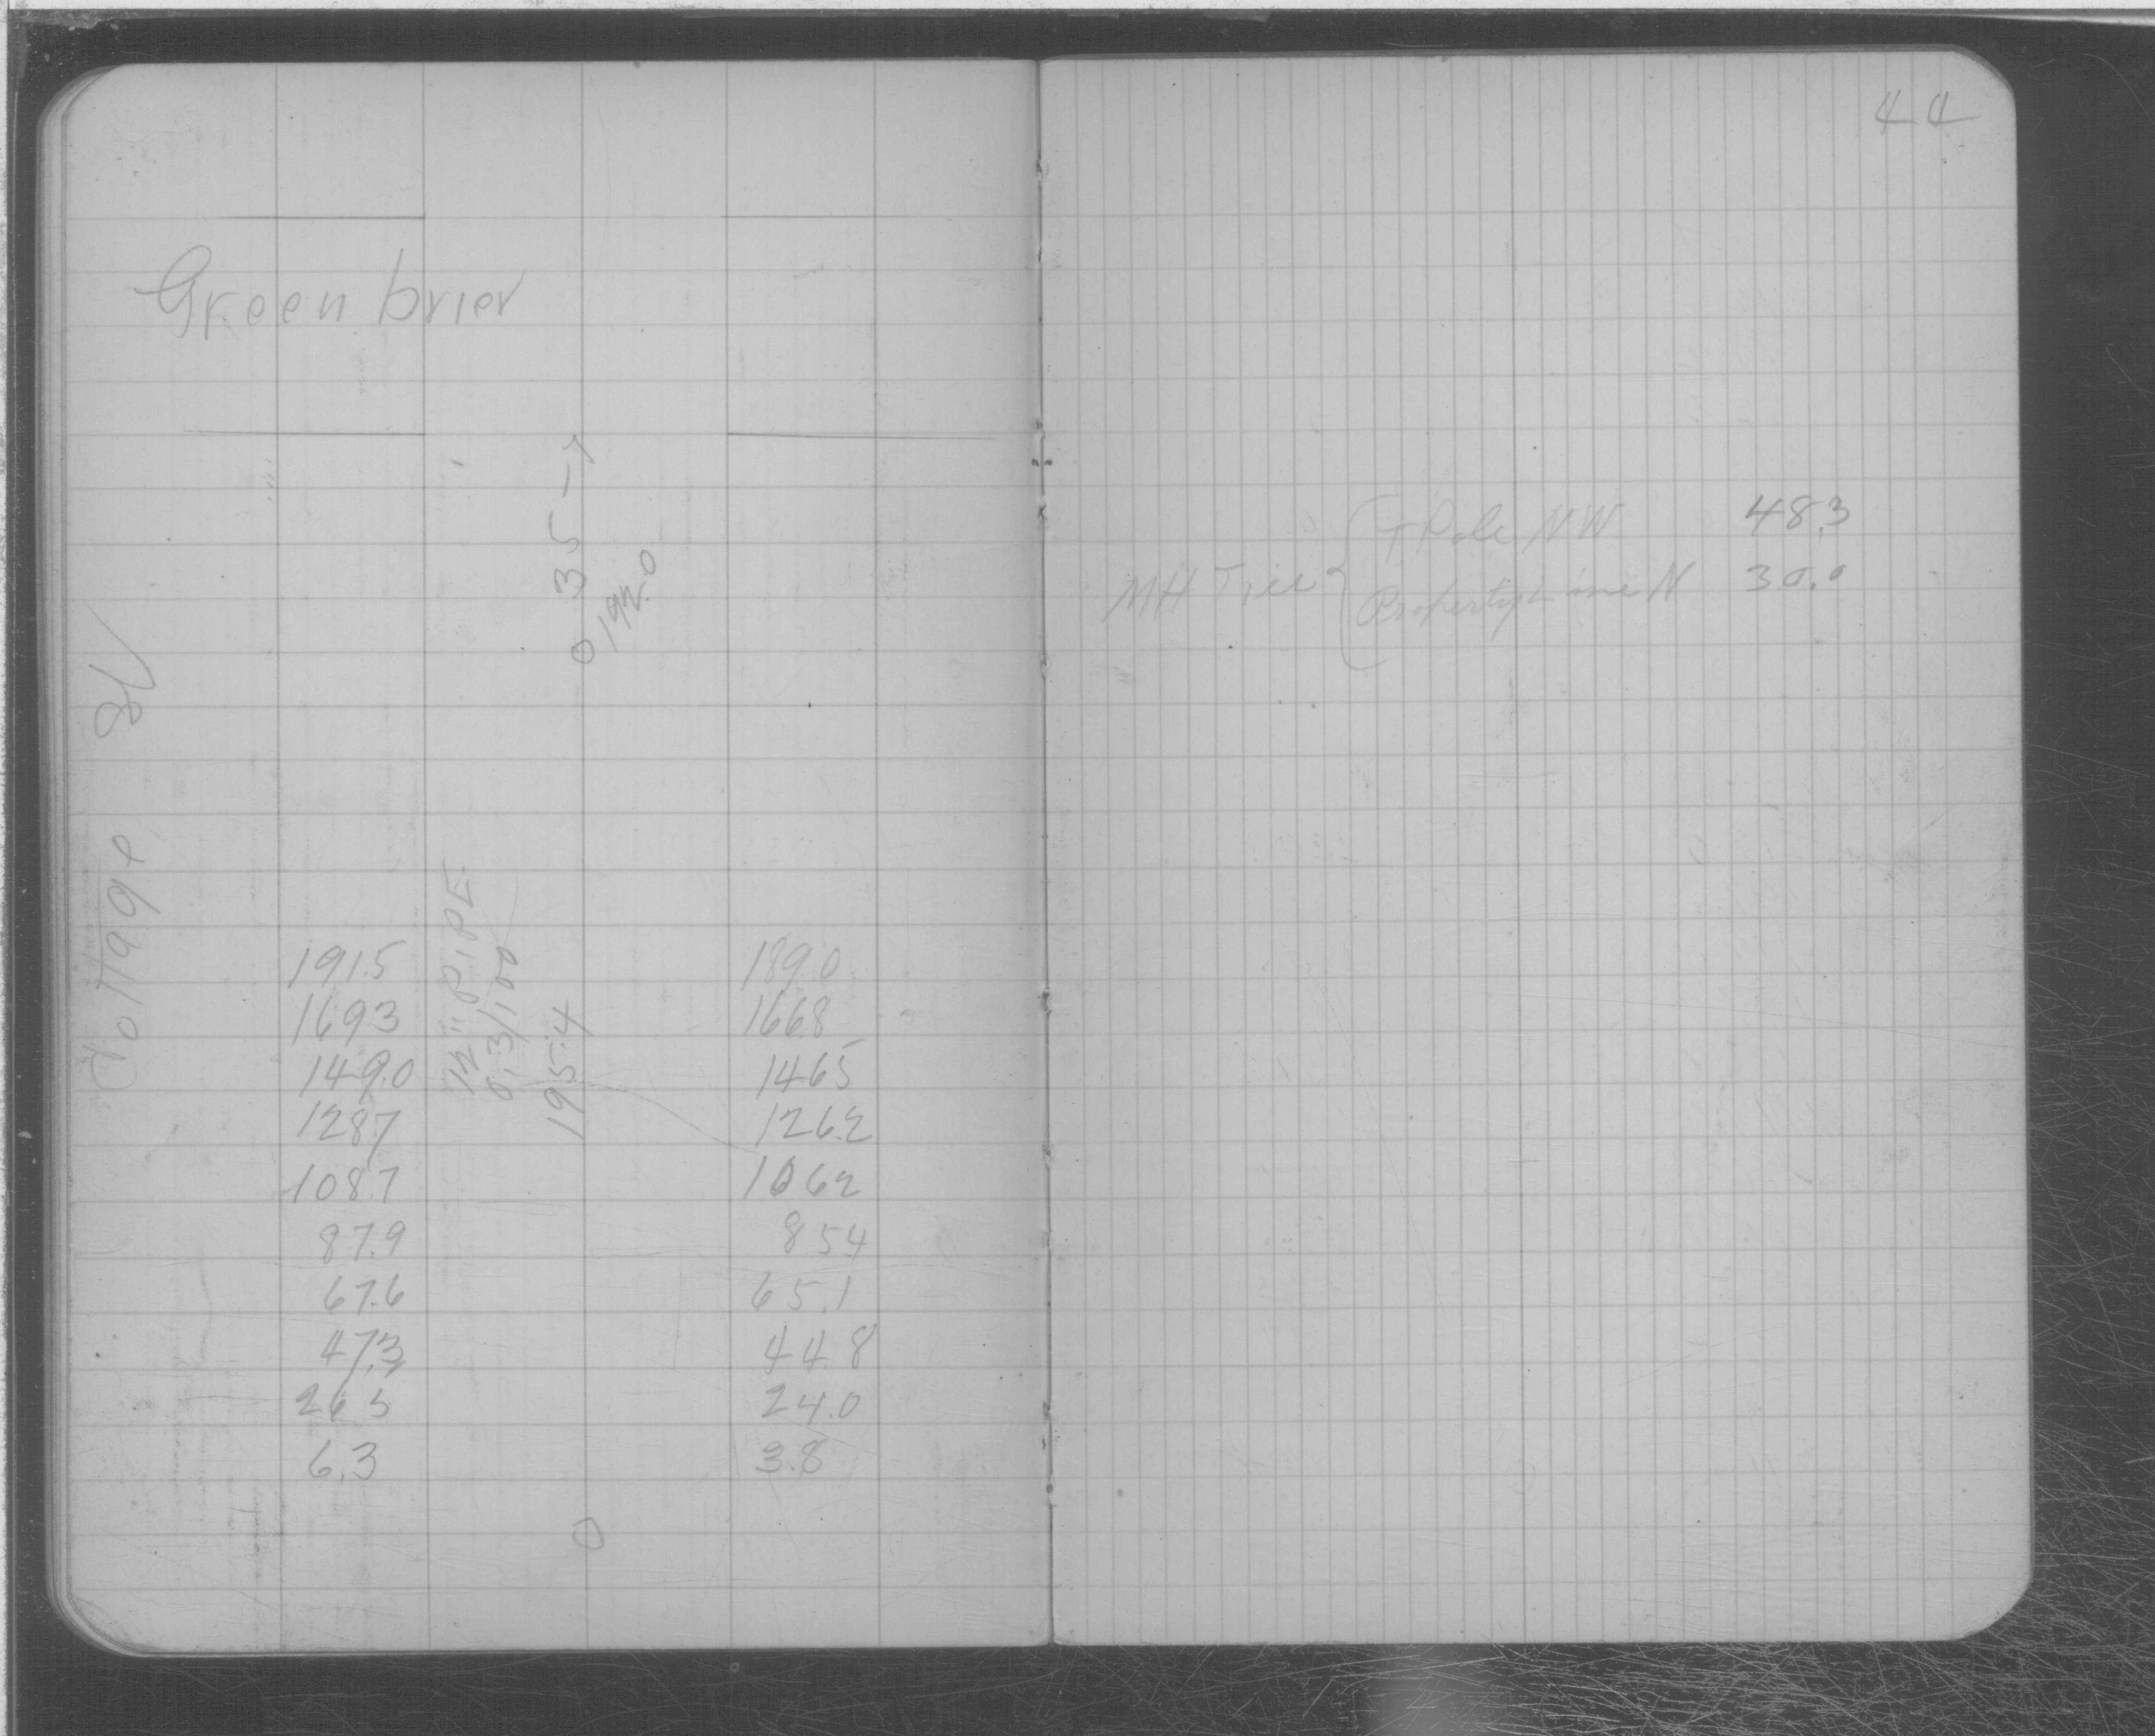 44
Green brier
35 →
0 192.0
T Pole NW 48.3
MH Ties
Property Line N 30.0
Cottage St
12" PIPE
0.3/100
195.4
191.5 189.0
169.3 166.8
149.0 146.5
128.7 126.2
108.7 106.2
87.9 85.4
67.6 65.1
47.3 44.8
26.5 24.0
6.3 3.8
0